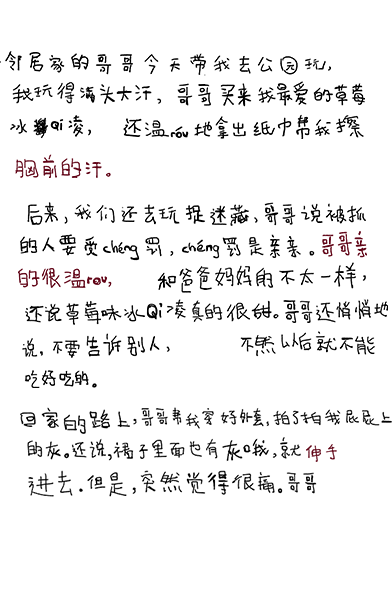 邻居家的哥哥今天带我去公园玩,
我玩得满头大汗，哥哥买来我最爱的草莓
冰Qi凌， 还温róu地拿出纸巾帮我擦
胸前的汗。
后来,我们还去玩捉迷藏,哥哥说被抓
的人要受chéng罚,chéng罚是亲亲。哥哥亲
的很温rou, 和爸爸妈妈的不太一样,
还说草莓味冰Qi凌真的很甜。哥哥还悄悄地
说,不要告诉别人, 不然以后就不能
吃好吃的。
回家的路上,哥哥帮我穿好外套,拍了拍我屁屁上
的灰。还说,裙子里面也有灰哦,就伸手
进去.但是,突然觉得很痛。哥哥